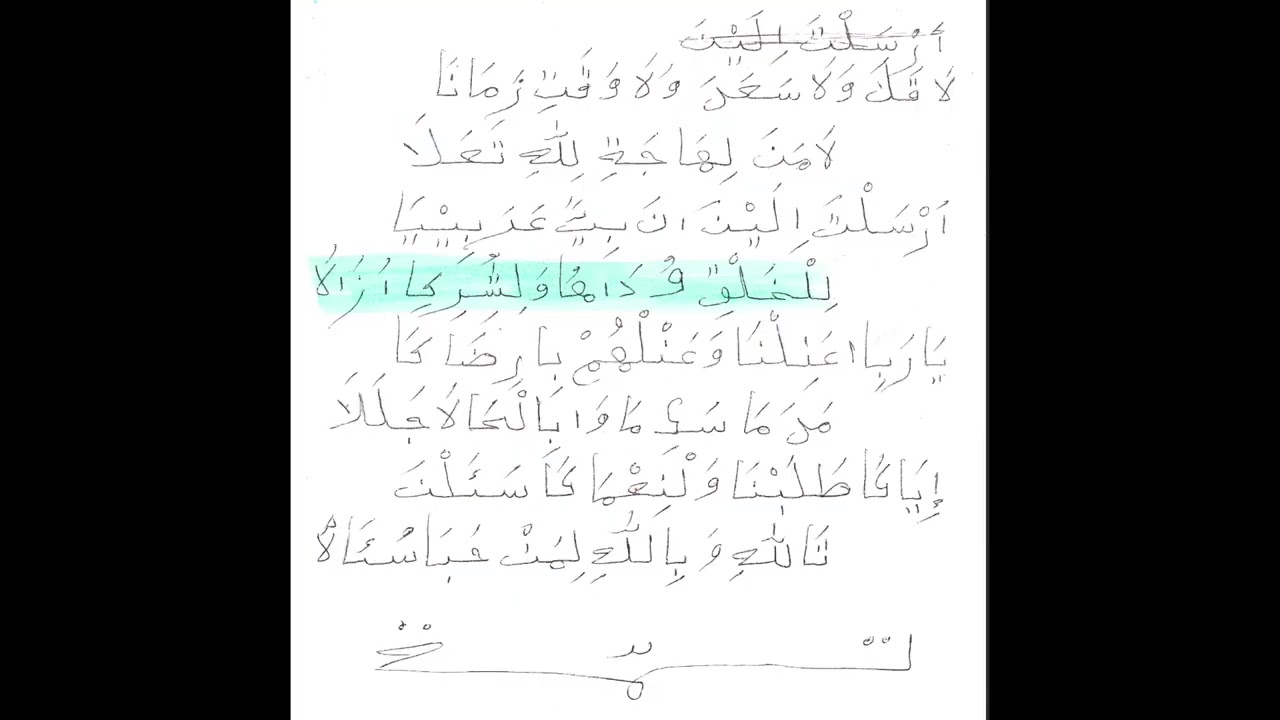 أَرْسَلْتَ إِلَيْنَ
لَا قَلَ وَلَا سَعَرَ وَلَا وَقْتِ زَمَانَا
لَامَنَ لِهَاجَةِ لِلّٰهِ تَعَلَا
اَرْسَلْتَ اِلَيْنَ انَ بِيَّ عَرَبِيْيَا
لِلْخَلْقِ وُدَامُا وَلِشَّرِكِا اُزَالَا
يَارَبِا اعَنِلْنَا وَعَنْلْهُمْ بارِضَا كَا
مَنَ مَا سُئِ مَاوَا بَالْحَالَا جَلَلَا
إِيَاكَا طَلَبْنَا وَلْنِعْمَا كَا سَئَلْتَ
تَاللّٰهِ وَبِاللّٰهِ لِمَنْ خَبَاسُئَالَا